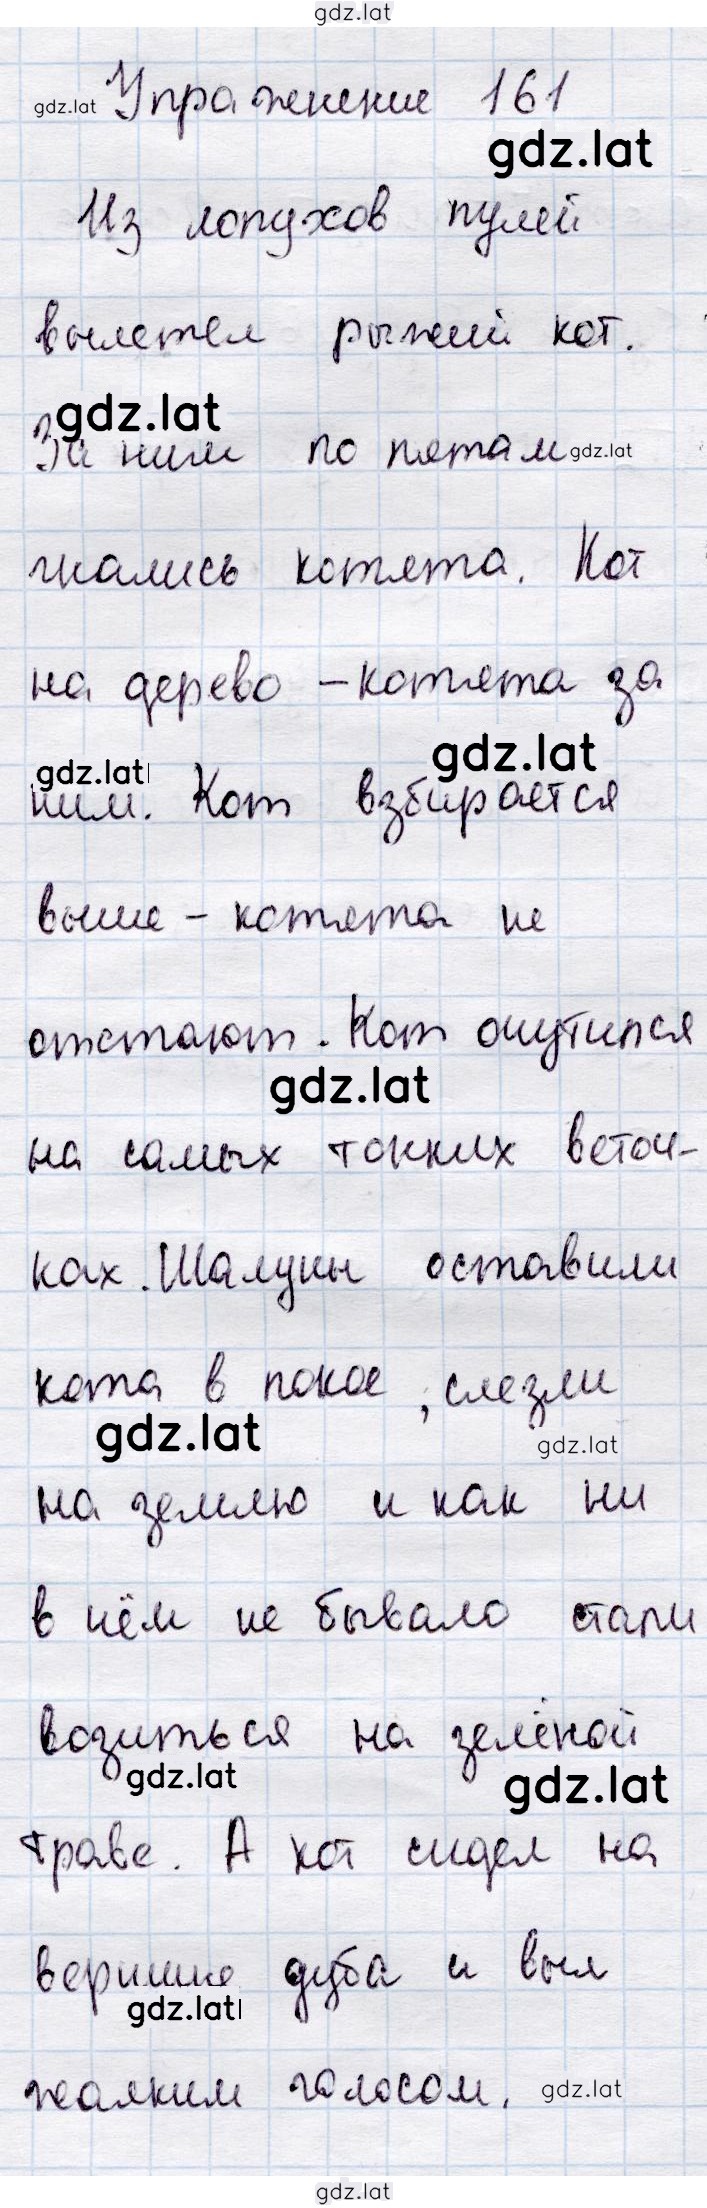 gdz.lat
gdz.lat Упражнение 161
gdz.lat
Из лопухов пулей
вылетел рыжий кот.
gdz.lat
За ним по пятам gdz.lat
гнались котята. Кот
на дерево - котята за
gdz.lat gdz.lat
ним. Кот взбирается
выше - котята не
отстают. Кот очутился
gdz.lat
на самых тонких веточ-
ках. Шалуны оставили
кота в покое, слезли
gdz.lat gdz.lat
на землю и как ни
в чём не бывало стали
возиться на зелёной
gdz.lat gdz.lat
траве. А кот сидел на
вершине дуба и выл
gdz.lat
жалким голосом. gdz.lat
gdz.lat